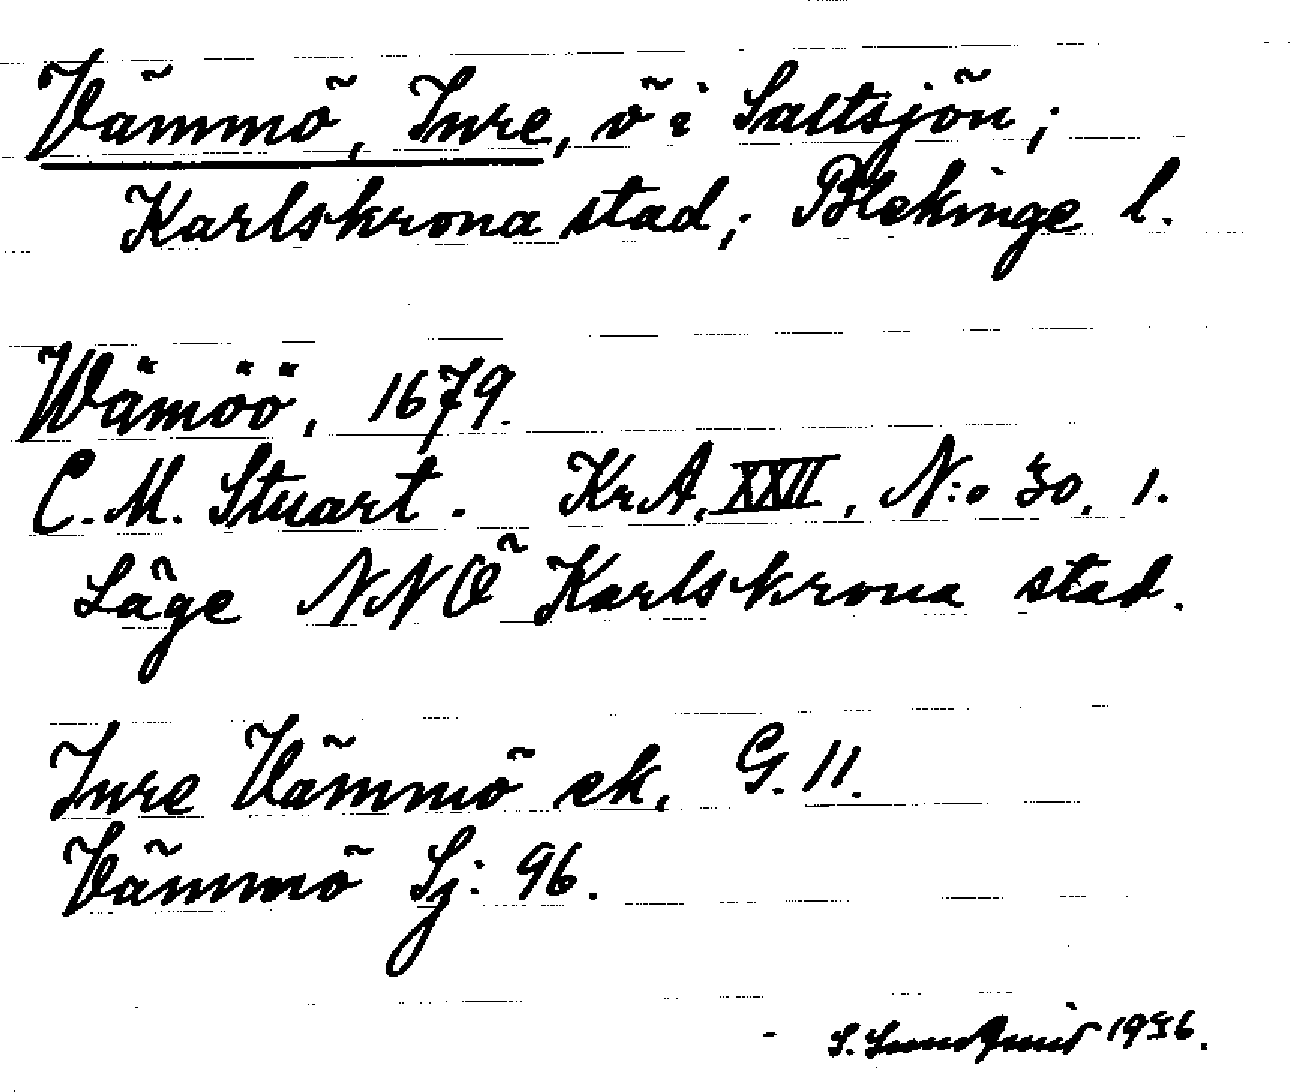 Vämmö, Inre, ö i Saltsjön;
Karlskrona stad; Blekinge l.
Wämöö, 1679.
C. M. Stuart. KrA, XXII, N:o 30, 1.
Läge NNÖ Karlskrona stad.
Inre Vämmö ek. G. 11.
Vämmö Sj: 96.
S. 1936.